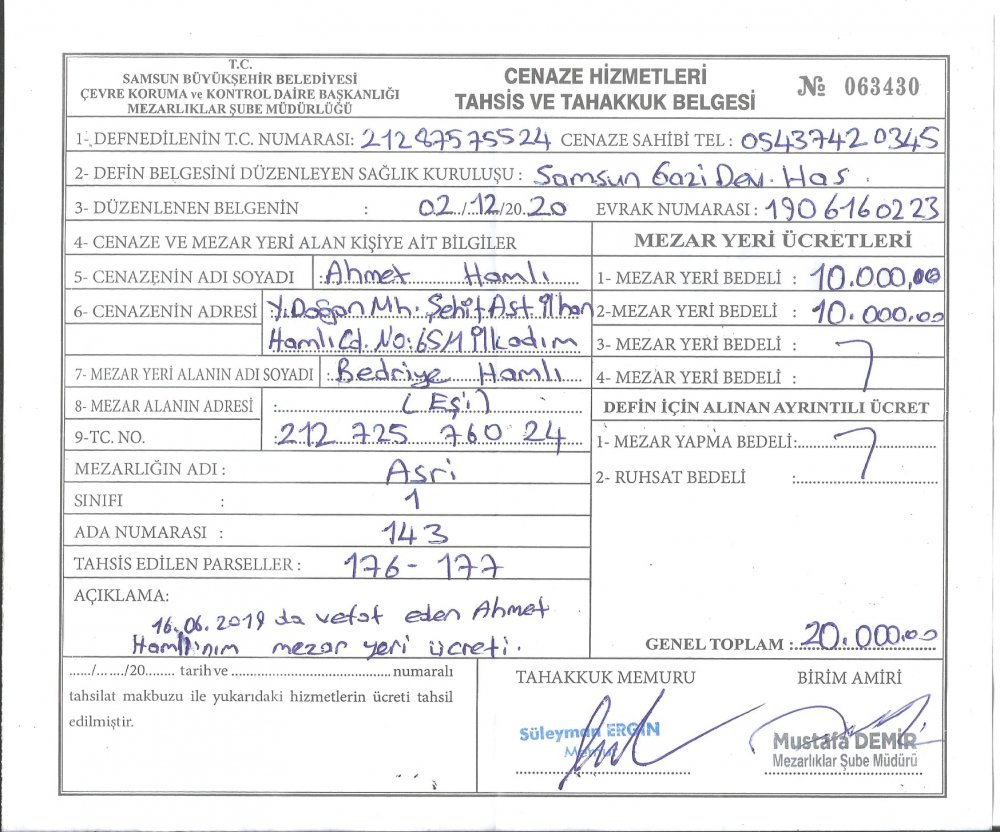 T.C.
SAMSUN BÜYÜKŞEHİR BELEDİYESİ
ÇEVRE KORUMA ve KONTROL DAİRE BAŞKANLIĞI
MEZARLIKLAR ŞUBE MÜDÜRLÜĞÜ
CENAZE HİZMETLERİ
TAHSİS VE TAHAKKUK BELGESİ
№ 063430
1- DEFNEDİLENİN T.C. NUMARASI: 21287575524 CENAZE SAHİBİ TEL : 05437420345
2- DEFİN BELGESİNİ DÜZENLEYEN SAĞLIK KURULUŞU : Samsun Gazi Dev. Has.
3- DÜZENLENEN BELGENİN : 02/12/2020 EVRAK NUMARASI : 1906160223
4- CENAZE VE MEZAR YERİ ALAN KİŞİYE AİT BİLGİLER
5- CENAZENİN ADI SOYADI : Ahmet Hamlı
6- CENAZENİN ADRESİ : Y.Doğan Mh. Şehit Ast. İlhan
Hamlı Cd. No:65/1 İlkadım
7- MEZAR YERİ ALANIN ADI SOYADI : Bedriye Hamlı
8- MEZAR ALANIN ADRESİ : (Eşi)
9-TC. NO. : 212 725 760 24
MEZARLIĞIN ADI : Asri
SINIFI : 1
ADA NUMARASI : 143
TAHSİS EDİLEN PARSELLER : 176 - 177
AÇIKLAMA:
16.06.2019 da vefat eden Ahmet
Hamlı'nım mezar yeri ücreti.
MEZAR YERİ ÜCRETLERİ
1- MEZAR YERİ BEDELİ : 10.000,00
2-MEZAR YERİ BEDELİ : 10.000.00
3- MEZAR YERİ BEDELİ :
4- MEZAR YERİ BEDELİ :
DEFİN İÇİN ALINAN AYRINTILI ÜCRET
1- MEZAR YAPMA BEDELİ:
2- RUHSAT BEDELİ :
GENEL TOPLAM : 20.000.00
....../...../20....... tarih ve ........................ numaralı
tahsilat makbuzu ile yukarıdaki hizmetlerin ücreti tahsil
edilmiştir.
TAHAKKUK MEMURU
Süleyman ERGİN
Memur
BİRİM AMİRİ
Mustafa DEMİR
Mezarlıklar Şube Müdürü